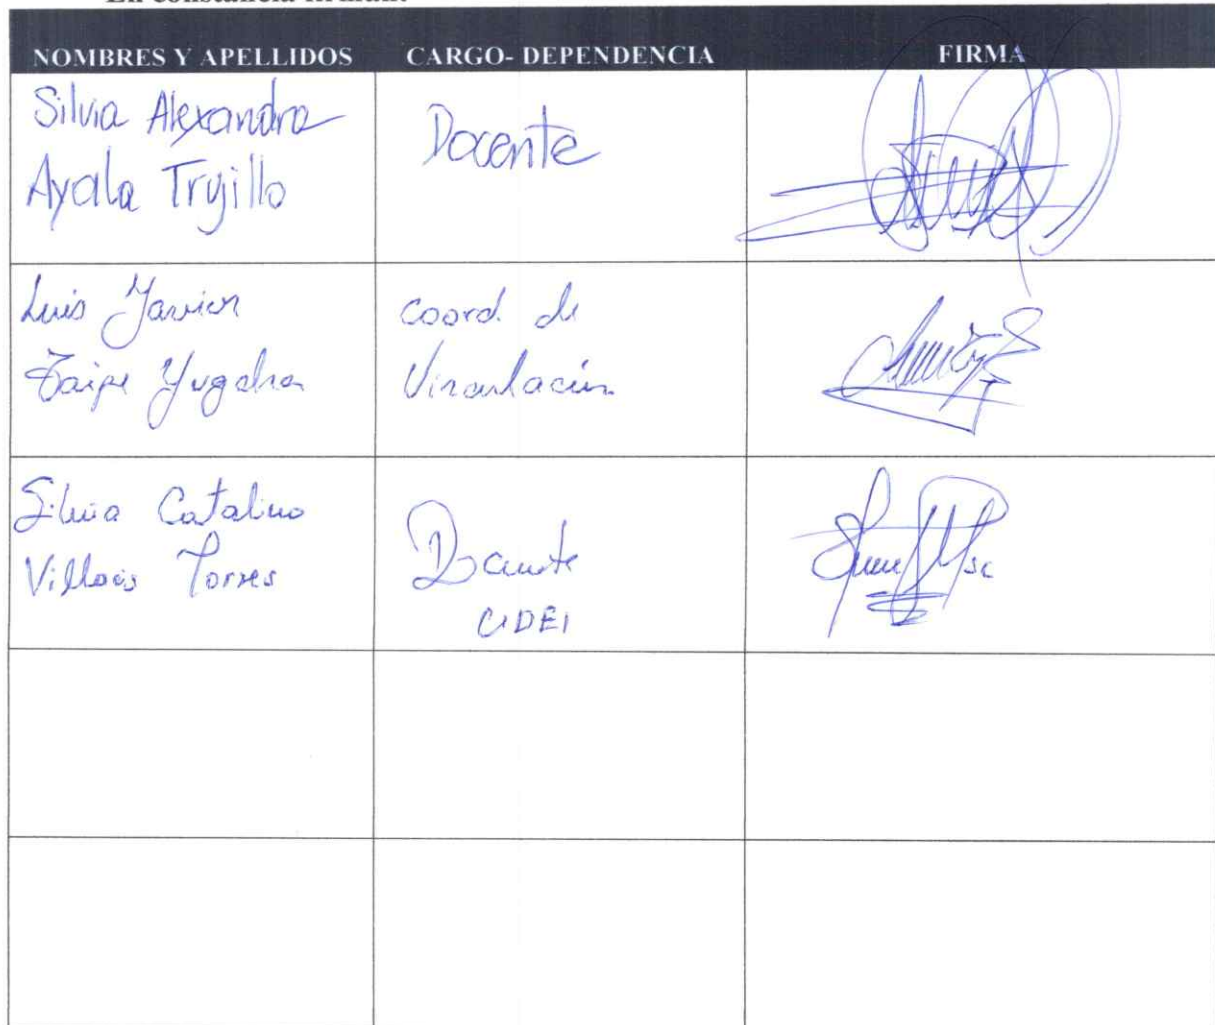 En constancia firman:
NOMBRES Y APELLIDOS CARGO- DEPENDENCIA FIRMA
Silvia Alexandra
Ayala Trujillo
Docente
Luis Javier
Taipe Yugcha
Coord. de
Vinculación
Silvia Catalina
Villacis Torres
Docente
CIDEI
Msc